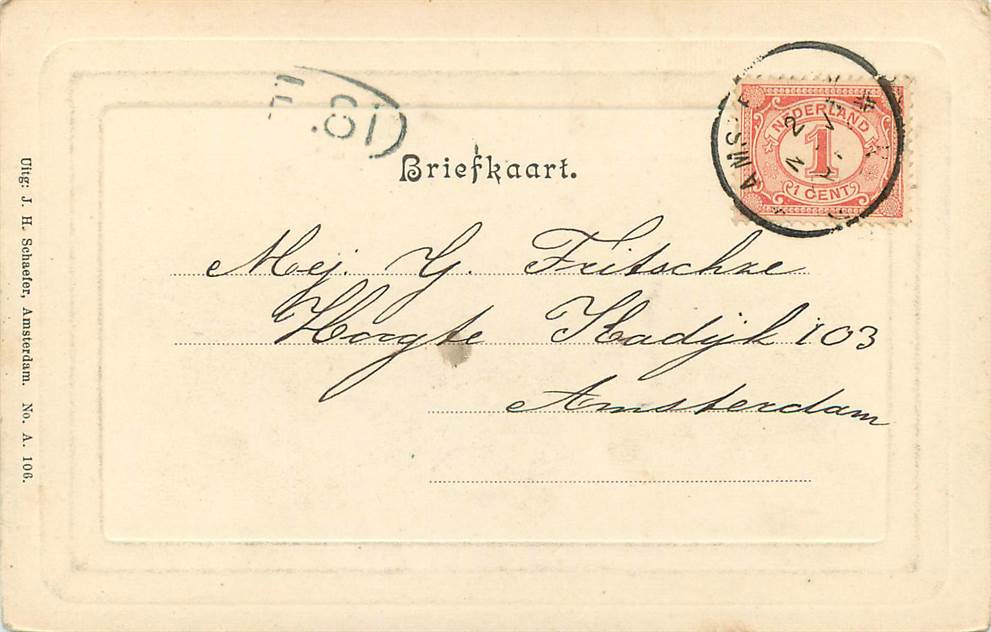 Briefkaart.
NEDERLAND
1
1 CENT
AMST
Mej. G. Fritschze
Hoogte Kadijk 103
Amsterdam
Uitg: J. H. Schaefer, Amsterdam. No. A. 106.